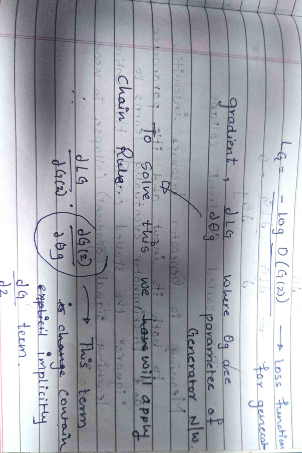 LG = - log D(G(z)) → Loss function for generator
gradient, dLG/dθg where θg are parameter of Generator N/W.
To solve this we will apply
chain Rule
∴ dLG/dG(z) · dG(z)/dθg → This term
is change contain
implicitly
dG/dz term.